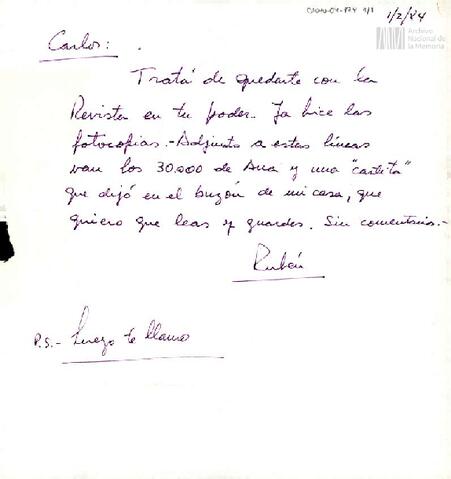 1/2/84
Archivo
Nacional de
la Memoria
Carlos:
Tratá de quedarte con la
Revista en tu poder. Ya hice las
fotocopias.- Adjunto a estas líneas
van los 30.000 de Ana y una "cartita"
que dejó en el buzón de mi casa, que
quiero que leas y guardes. Sin comentarios.-
Rubén
P.S.- Luego te llamo